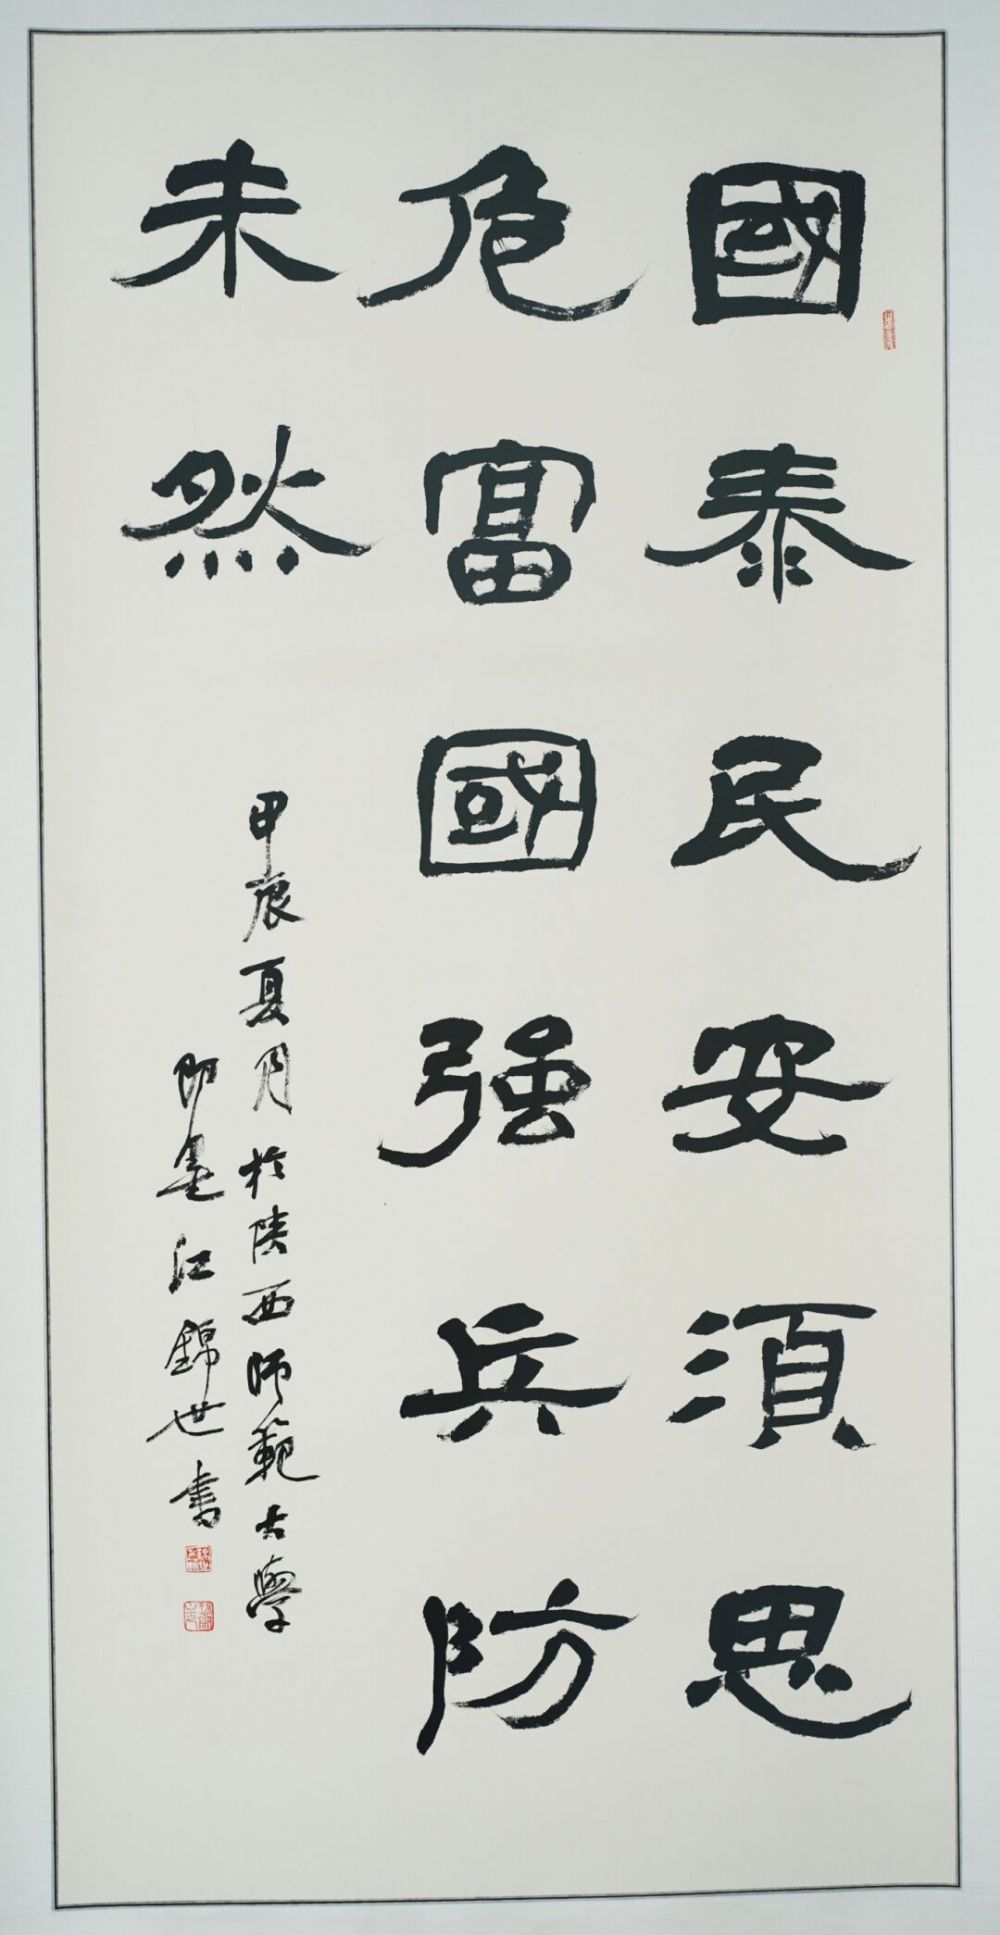 國泰民安須思
危富國強兵防
未然
甲辰夏月於陕西師範大學
即墨江錦世书